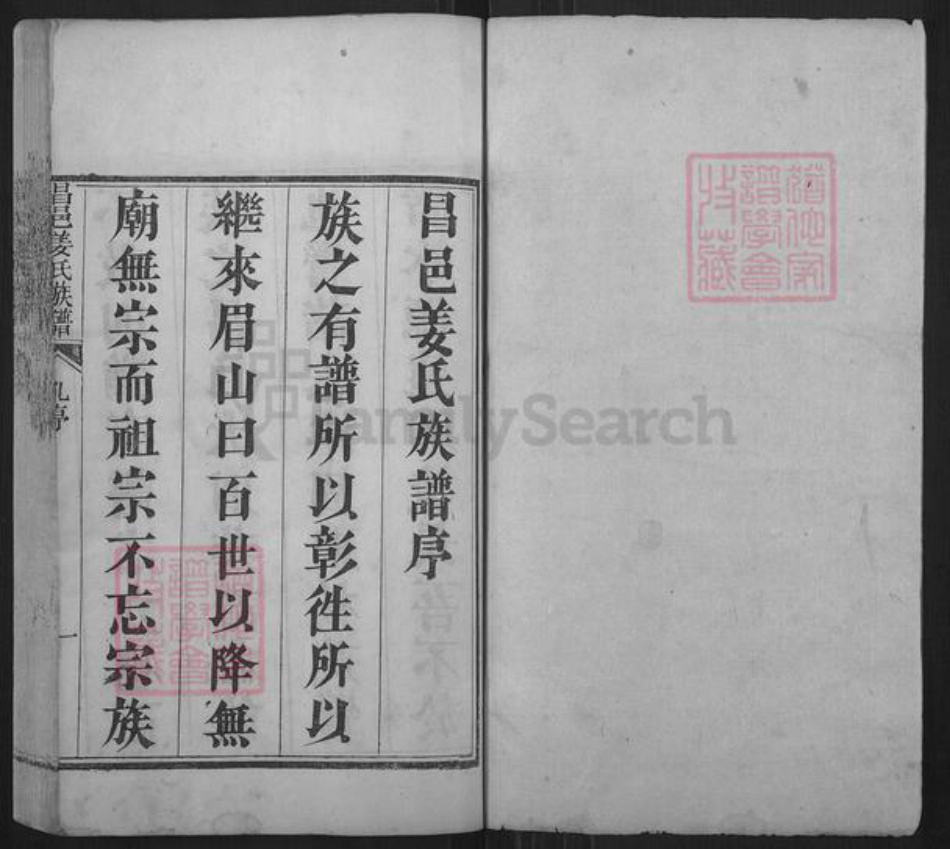 昌邑姜氏族譜序
族之有譜所以彰徃所以
繼來眉山曰百世以降無
廟無宗而祖宗不忘宗族
昌邑姜氏族譜
一
FamilySearch